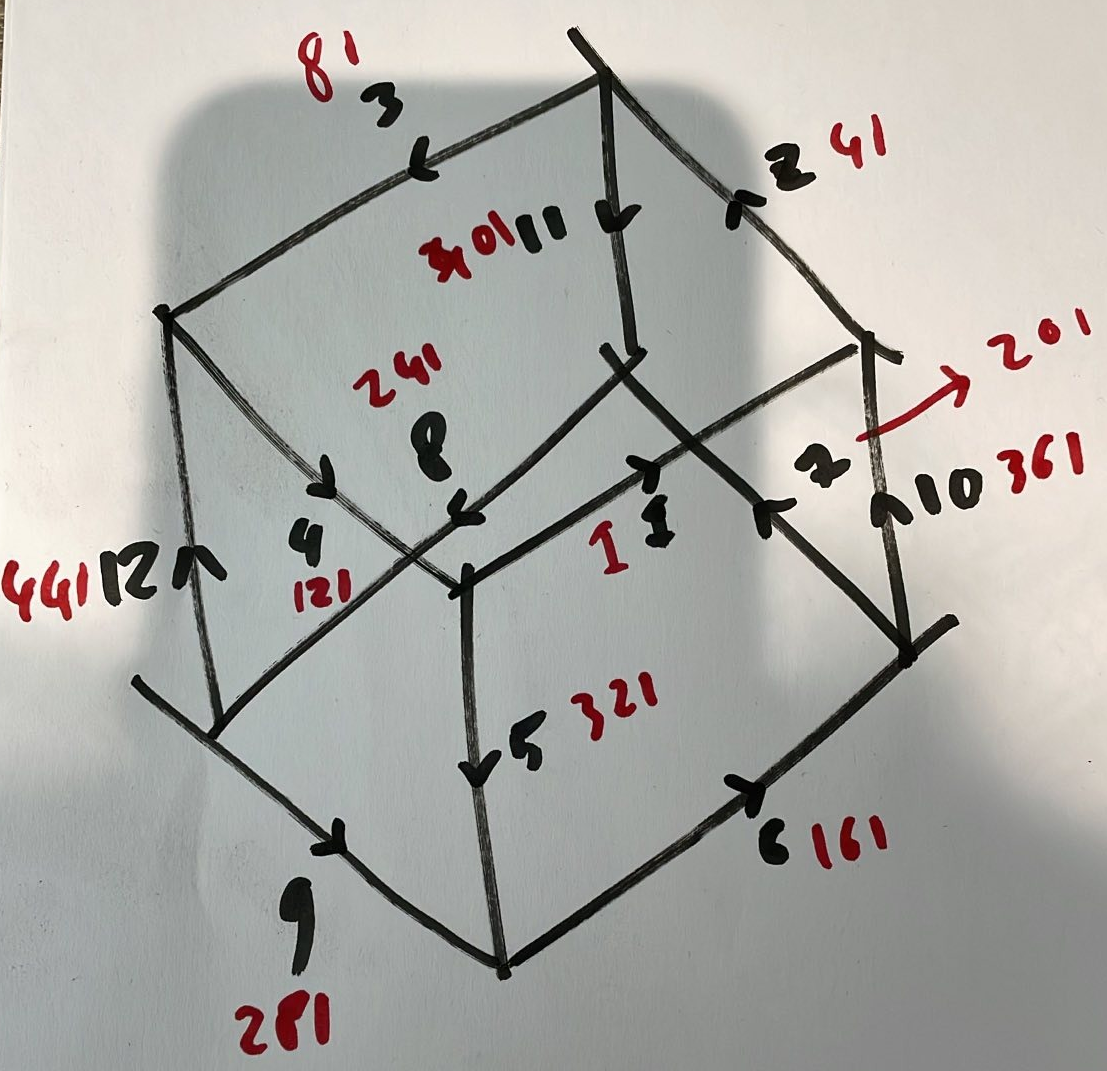 81
3
2 41
401 11
201
241
8
7
10 361
4
1 1
441 12
121
5 321
6 161
9
281